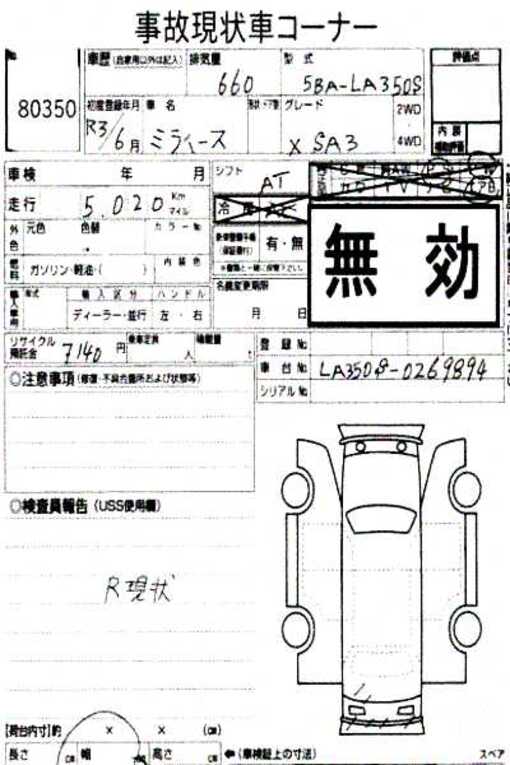 事故現状車コーナー
No. 80350
車歴(自家用以外は記入) 排気量 660 型式 5BA-LA350S
評価点
初度登録年月 R3/6月 車名 ミライース グレード X SA3 2WD・4WD
内装 補助評価
車検 年 月 シフト AT
走行 5,020 Km マイル
外色 元色 色替 カラーNo.
有・無
無効
燃料 ガソリン・軽油・( ) 内装色
名義変更期限 月 日
輸入車用 年式 輸入区分 ハンドル
ディーラー・並行 左・右
リサイクル預託金 7140円 乗車定員 人 積載量 t
登録No.
車台No. LA350S-0269894
シリアルNo.
○注意事項(修復・不具合箇所および状態等)
○検査員報告(USS使用欄)
R現状
[荷台内寸]約 × × (cm)
長さ cm 幅 cm 高さ cm ←(車検証上の寸法)
スペア